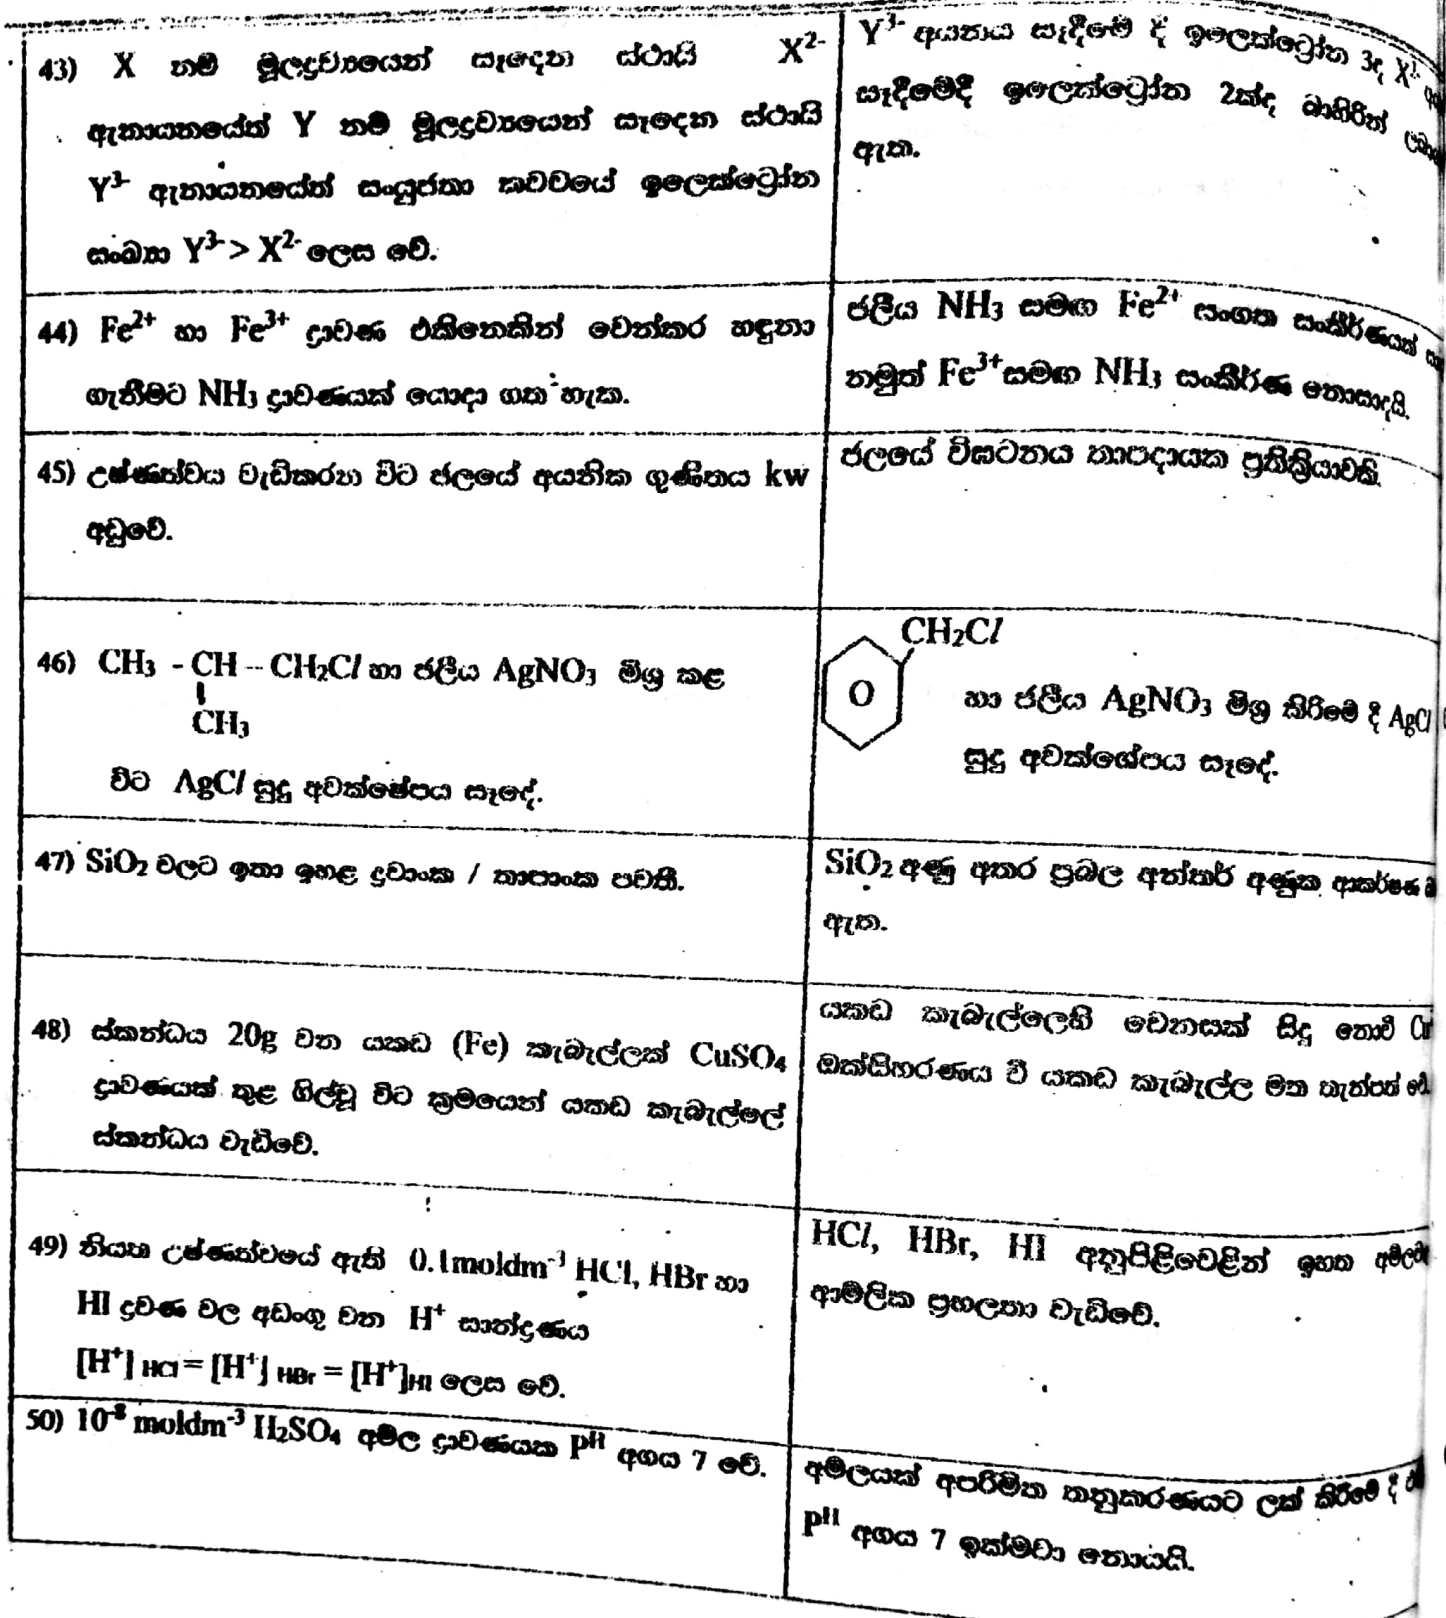 43) X නම් මූලද්‍රව්‍යයෙන් සෑදෙන ස්ථායි X²⁻
ඇනායනයේත් Y නම් මූලද්‍රව්‍යයෙන් සෑදෙන ස්ථායි
Y³⁻ ඇනායනයේත් සංයුජතා කවචයේ ඉලෙක්ට්‍රෝන
සංඛ්‍යා Y³⁻ > X²⁻ ලෙස වේ.
Y³⁻ අයනය සෑදීමේ දී ඉලෙක්ට්‍රෝන 3ද X²⁻
සෑදීමේදී ඉලෙක්ට්‍රෝන 2ක්ද බාහිරින්
ඇත.
44) Fe²⁺ හා Fe³⁺ ද්‍රාවණ එකිනෙකින් වෙන්කර හඳුනා
ගැනීමට NH₃ ද්‍රාවණයක් යොදා ගත හැක.
ජලීය NH₃ සමඟ Fe²⁺ සංගත සංකීර්ණයක්
නමුත් Fe³⁺ සමඟ NH₃ සංකීර්ණ නොසාදයි.
45) උෂ්ණත්වය වැඩිකරන විට ජලයේ අයනික ගුණිතය kw
අඩුවේ.
ජලයේ විඝටනය තාපදායක ප්‍රතික්‍රියාවකි.
46) CH₃ - CH -- CH₂Cl හා ජලීය AgNO₃ මිශ්‍ර කළ
CH₃
විට AgCl සුදු අවක්ෂේපය සෑදේ.
CH₂Cl
O
හා ජලීය AgNO₃ මිශ්‍ර කිරීමේ දී AgCl
සුදු අවක්ශේපය සෑදේ.
47) SiO₂ වලට ඉතා ඉහළ ද්‍රවාංක / තාපාංක පවතී.
SiO₂ අණු අතර ප්‍රබල අන්තර් අණුක ආකර්ෂණ
ඇත.
48) ස්කන්ධය 20g වන යකඩ (Fe) කැබැල්ලක් CuSO₄
ද්‍රාවණයක් තුළ ගිල්වූ විට ක්‍රමයෙන් යකඩ කැබැල්ලේ
ස්කන්ධය වැඩිවේ.
යකඩ කැබැල්ලෙහි වෙනසක් සිදු නොවී
ඔක්සිහරණය වී යකඩ කැබැල්ල මත තැන්පත් වේ.
49) නියත උෂ්ණත්වයේ ඇති 0.1moldm⁻³ HCl, HBr හා
HI ද්‍රවණ වල අඩංගු වන H⁺ සාන්ද්‍රණය
[H⁺] HCl = [H⁺] HBr = [H⁺]HI ලෙස වේ.
HCl, HBr, HI අනුපිළිවෙළින් ඉහත
ආම්ලික ප්‍රභලතා වැඩිවේ.
50) 10⁻⁸ moldm⁻³ H₂SO₄ අම්ල ද්‍රාවණයක pᴴ අගය 7 වේ.
අම්ලයක් අපරිමිත තනුකරණයට ලක් කිරීමේ දී
pᴴ අගය 7 ඉක්මවා නොයයි.